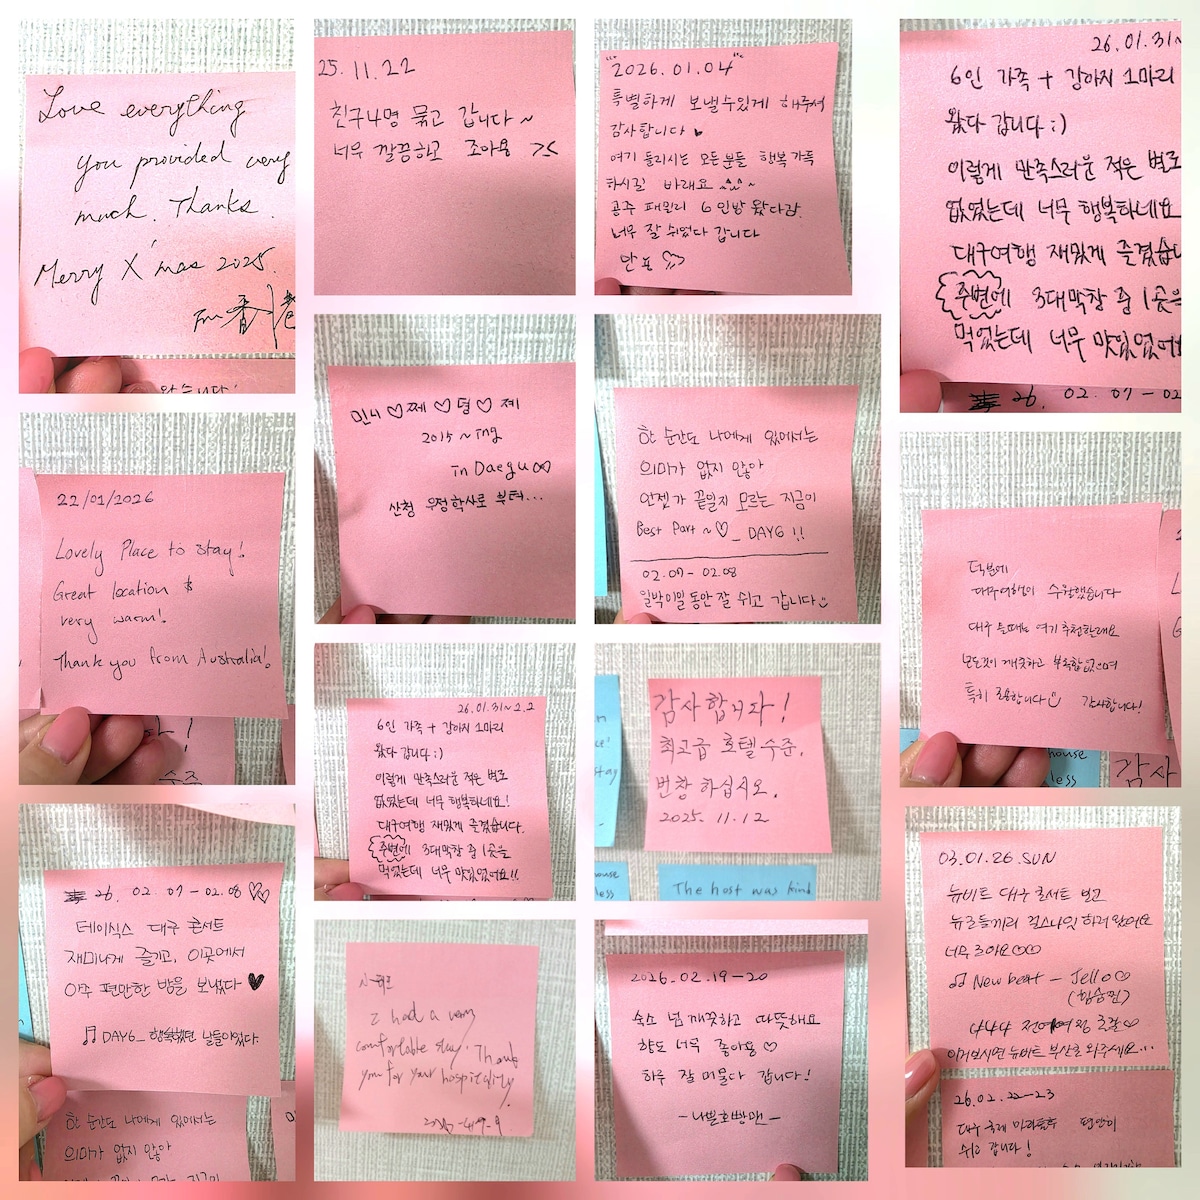 Love everything
you provided very
much. Thanks.
Merry X'mas 2025.
Fm 香港
22/01/2026
Lovely Place to stay!
Great location &
very warm!
Thank you from Australia!
26. 02. 07 - 02.08 ♡♡
데이식스 대구 콘서트
재미나게 즐기고, 이곳에서
아주 편안한 밤을 보냈다 ♥
♬ DAY6_ 행복했던 날들이었다.
한 순간도 나에게 있어서는
의미가 없지 않아
25.11.22
친구4명 묵고 갑니다~
너무 깔끔하고 조아용 ><
민니♡쩨♡덜♡제
2015 ~ ing
in Daegu
산청 우정학사로 부터...
26.01.31~2.2
6인 가족 + 강아지 1마리
왔다 갑니다 :)
이렇게 만족스러운 적은 별로
없었는데 너무 행복하네요!
대구여행 재밌게 즐겼습니다.
주변에 3대막창 중 1곳을
먹었는데 너무 맛있었어요!!
I had a very
comfortable stay. Thank
you for your hospitality.
"2026.01.04"
특별하게 보낼수있게 해주셔
감사합니다 ♥
여기 들리시는 모든분들 행복가득
하시길 바래요 ^^~
공주 패밀리 6인방 왔다감.
너무 잘 쉬었다 갑니다
한 순간도 나에게 있어서는
의미가 없지 않아
언젠가 끝일지 모르는 지금이
Best Part ~♡_ DAY6 !!
02.07 - 02.08
일박이일 동안 잘 쉬고 갑니다
감사합니다!
최고급 호텔 수준.
번창 하십시오.
2025. 11.12
stay
The host was kind
2026.02.19-20
숙소 넘 깨끗하고 따뜻해요
향도 너무 좋아용 ♡
하루 잘 머물다 갑니다!
-나쁜호빵맨-
26.01.31~
6인 가족 + 강아지 1마리
왔다 갑니다 :)
이렇게 만족스러운 적은 별로
없었는데 너무 행복하네요
대구여행 재밌게 즐겼습니
주변에 3대막창 중 1곳을
먹었는데 너무 맛있었어
26. 02. 07 - 02
덕분에
대구여행이 수월했습니다
대구 올때는 여기 추천할래요
모든것이 깨끗하고 부족함없으며
특히 조용합니다 감사합니다!
house
less
감사
03.01.26.SUN
뉴비트 대구 콘서트 보고
뉴로들끼리 걸스나잇 하러 왔어요
너무 조아요♡♡♡
♬ New beat - Jello♡
444 전여여정 조잘♡
이거보시면 뉴비트 부산도 와주세요...
26.02.22-23
대구 국제 마라톤후 편안히
쉬고 갑니다!